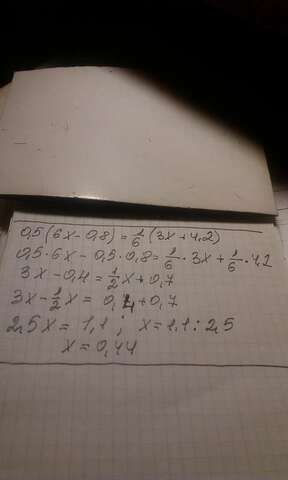 0,5(6x-0,8)=1/6(3x+4,2)
0,5·6x-0,5·0,8=1/6·3x+1/6·4,2
3x-0,4=1/2x+0,7
3x-1/2x=0,4+0,7
2,5x=1,1; x=1,1:2,5
x=0,44